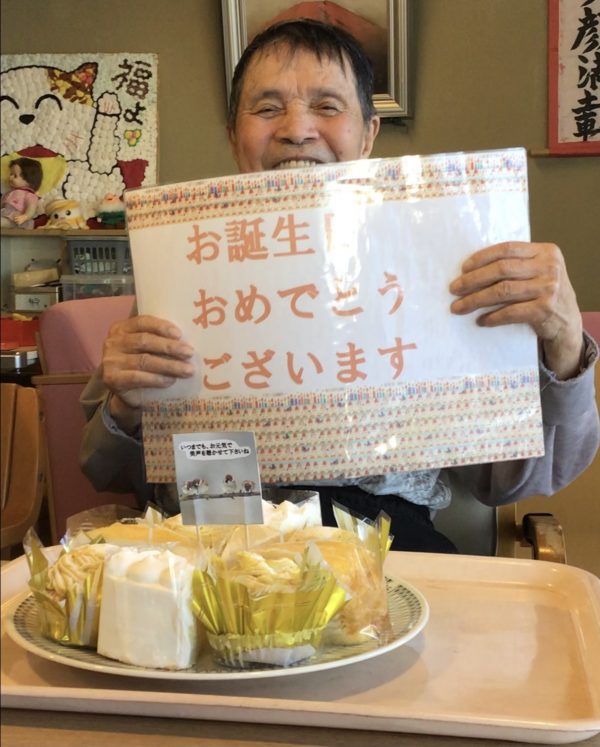 福よ
お誕生日
おめでとう
ございます
いつまでも、お元気で
美声を聴かせて下さいね